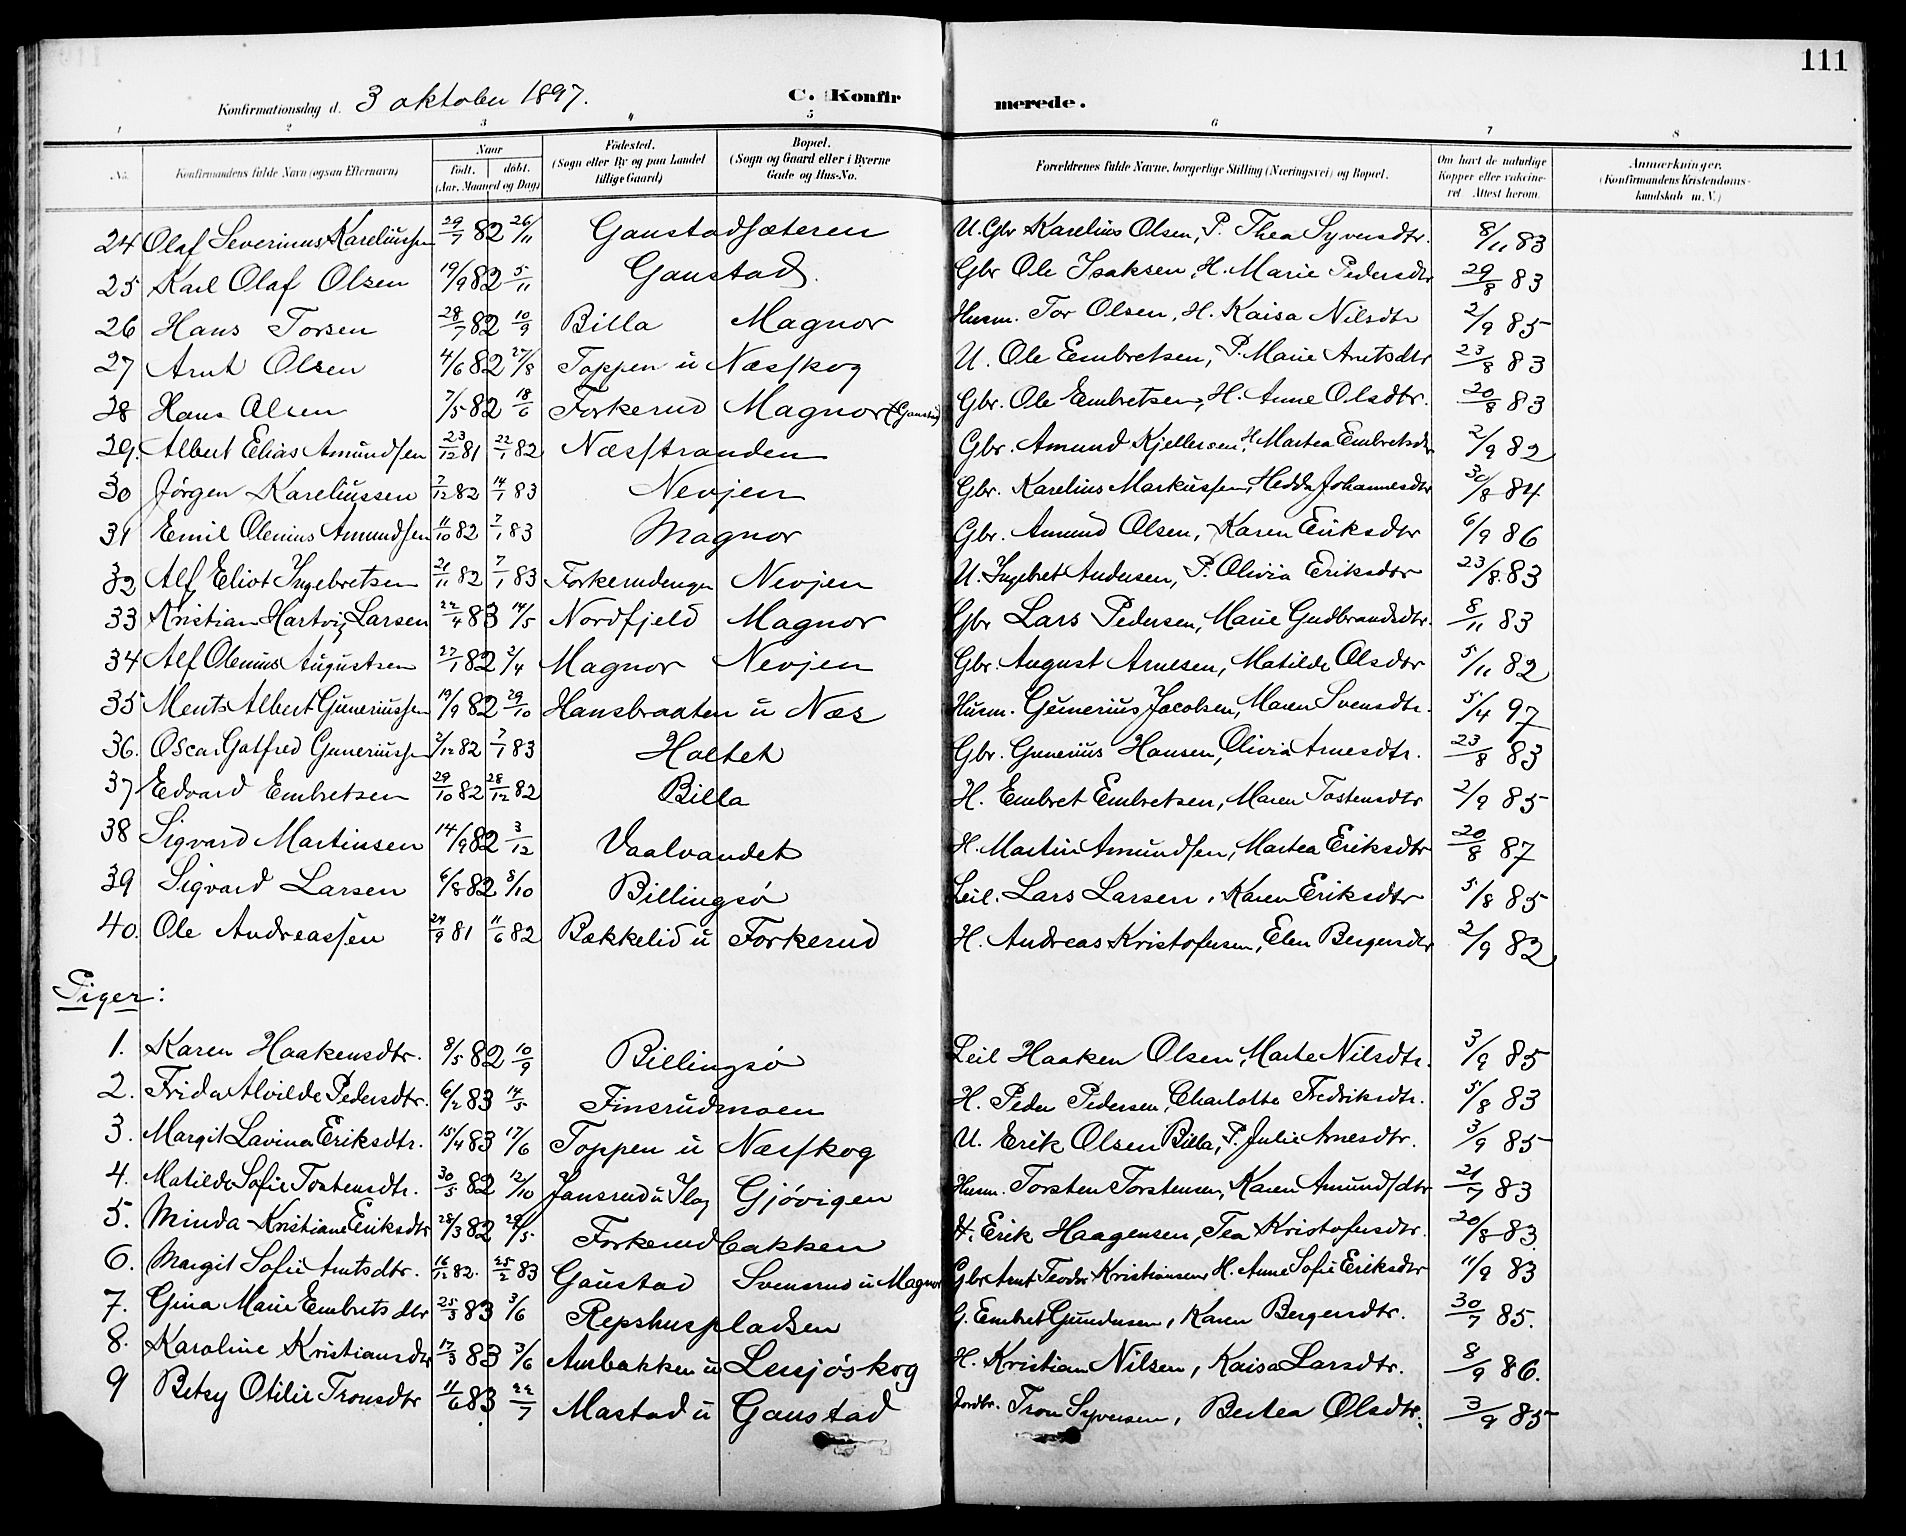 111
Konfirmationsdag d. 3 oktober 1897. C. Konfirmerede.
1 2 3 4 5 6 7 8
No. Konfirmandens fulde Navn (ogsaa Efternavn) Naar födt. döbt. (Aar, Maaned og Dag) Födested. (Sogn eller By og paa Landet tillige Gaard) Bopæl. (Sogn og Gaard eller i Byerne Gade og Hus-No. Forældrenes fulde Navne, borgerlige Stilling (Næringsvei) og Bopæl. Om havt de naturlige Kopper eller vakcineret. Attest herom. Anmærkninger. (Konfirmandens Kristendomskundskab m. V.)
24 Olaf Severinus Kareliussen 29/7 82 26/11 Gaustadsæteren U. Gbr Karelius Olsen, P. Thea Syversdtr. 8/11 83
25 Karl Olaf Olsen 19/9 82 5/11 Gaustad. Gbr Ole Isaksen, H. Marie Pedersdtr 29/8 83
26 Hans Torsen 28/7 82 10/9 Billa Magnor Husm. Tor Olsen, H. Kaisa Nilsdtr 2/9 85
27 Arnt Olsen 4/6 82 27/8 Toppen u Næsskog U. Ole Eembretsen, P. Marie Arntsdtr 23/8 83
28 Hans Olsen 7/5 82 18/6 Forkerud Magnor (Gaustad) Gbr. Ole Embretsen, H. Anne Olsdtr. 20/8 83
29. Albert Elias Amundsen 23/12 81 22/1 82 Næsstranden Gbr. Amund Kjellersen, H. Martea Embretsdtr 2/9 82
30 Jörgen Kareliussen 7/12 82 14/1 83 Nevjen Gbr. Karelius Markussen, Hedda Johannesdtr 30/8 84
31 Emil Olenius Amundsen 11/10 82 7/1 83 Magnor Gbr. Amund Olsen, Karen Eriksdtr 6/9 86
32 Alf Eliot Ingebretsen 21/11 82 7/1 83 Forkerudengen Nevjen U. Ingebret Andersen, P. Olivia Eriksdtr 23/8. 83
33 Kristian Hartvig Larsen 22/4 83 14/5 Nordfjeld Magnor Gbr Lars Pedersen, Marie Gudbrandsdtr. 8/11 83
34 Alf Olenius Augustsen 27/1 82 2/4 Magnor Nevjen Gbr August Arnesen, Matilde Olsdtr 5/11 82
35 Ments Albert Guneriussen 19/9 82 29/10 Hansbraaten u Næs Husm. Gunerius Jacobsen, Maren Svensdtr. 5/4 97
36. Oscar Gotfred Guneriussen 2/12 82 7/1 83 Holtet Gbr. Gunerius Hansen, Olivia Arnesdtr. 23/8 83
37 Edvard Embretsen 29/10 82 28/12 82 Billa H. Embret Embretsen, Maren Tostensdtr 2/9 85
38 Sigvard Martinsen 14/9 82 3/12 Vaalvandet H. Martin Amundsen, Martea Eriksdtr 20/8 87
39 Sigvard Larsen 6/8 82 8/10 Billingsö Leil. Lars Larsen, Karen Eriksdtr 5/8 85
40. Ole Andreassen 24/9 81 11/6 82 Bækkelid u Forkerud H. Andreas Kristofersen, Elen Bergersdtr 2/9 82
Piger:
1. Karen Haakensdtr. 8/5 82 10/9 Billingsö Leil Haaken Olsen, Marte Nilsdtr. 3/9 85
2. Frida Alvilde Pedersdtr. 6/2 83 14/5 Finsrudmoen H. Peder Pedersen, Charlotte Fredriksdtr. 5/8 83
3. Margit Lavina Eriksdtr. 15/4 83 17/6 Toppen u Næsskog U. Erik Olsen Billa, P. Julie Arnesdtr. 3/9 85
4. Matilde Sofie Tostensdtr. 30/5 82 12/10 Jansrud u Ilag Gjövigen Husm. Torsten Torstensen, Karen Amundsdtr 21/7 83
5. Minda Kristiane Eriksdtr 28/3 82 29/5 Forkerudbakken H. Erik Haagensen, Tea Kristofersdtr. 20/8 83
6. Margit Sofie Arntsdtr. 16/12 82. 25/2 83 Gaustad Svensrud u Magnor Gbr Arnt Teodor Kristiansen H. Anne Sofie Eriksdtr 11/9 83
7. Gina Marie Embretsdtr 25/3 83 3/6 Repshuspladsen G. Embret Gundersen, Karen Bergersdtr. 30/7 85.
8. Karoline Kristiansdtr 17/3 83 3/6 Aurbakken u Lersjöskog H. Kristian Nilsen, Kaisa Larsdtr. 8/9 86.
9 Betzy Otilie Tronsdtr 11/6 83 22/7 Mastad u Gaustad Jordbr. Tron Syversen, Bertea Olsdtr. 3/9 85